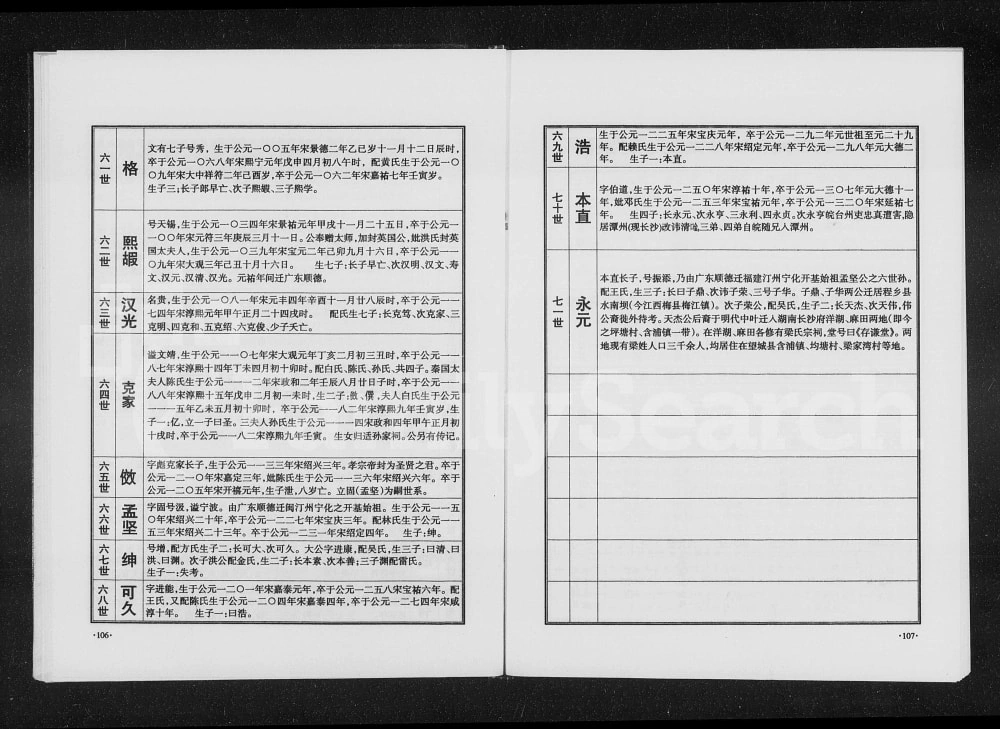 六一世
格
文有七子号秀，生于公元一〇〇五年宋景德二年乙巳岁十一月十二日辰时，
卒于公元一〇六八年宋熙宁元年戊申四月初八午时， 配黄氏生于公元一〇
〇九年宋大中祥符二年己酉岁，卒于公元一〇六二年宋嘉祐七年壬寅岁。
生子三；长子郎早亡、次子熙嘏、三子熙学。
六二世
熙嘏
号天锡，生于公元一〇三四年宋景祐元年甲戌十一月二十五日，卒于公元一
一〇〇年宋元符三年庚辰三月十一日。公奉赠太师，加封英国公，妣洪氏封英
国太夫人，生于公元一〇三九年宋宝元二年己卯九月十六日，卒于公元一一
〇九年宋大观三年己丑十月十六日。 生七子；长子早亡、次汉明、汉文、寿
文、汉元、汉清、汉光。元祐年间迁广东顺德。
六三世
汉光
名贵，生于公元一〇八一年宋元丰四年辛酉十一月廿八辰时，卒于公元一一
七四年宋淳熙元年甲午正月二十四戌时。 配氏生七子；长克笃、次克家、三
克明、四克和、五克绍、六克俊、少子天亡。
六四世
克家
谥文靖，生于公元一一〇七年宋大观元年丁亥二月初三丑时，卒于公元一一
八七年宋淳熙十四年丁未四月十卯时。配白氏、陈氏、孙氏、共四子。秦国太
夫人陈氏生于公元一一一二年宋政和二年壬辰八月廿日子时，卒于公元一一
八八年宋淳熙十五年戊申二月初一未时，生二子：傲、儹，夫人白氏生于公元
一一一五年乙未五月初十卯时，卒于公元一一八二年宋淳熙九年壬寅岁，生
子一；亿，立一子曰圣。三夫人孙氏生于公元一一一四宋政和四年甲午正月初
十戌时，卒于公元一一八二宋淳熙九年壬寅。 生女归适孙家祠。公另有传记。
六五世
字彪克家长子，生于公元一一三三年宋绍兴三年。孝宗帝封为圣贤之君。卒于
公元一二一〇年宋嘉定三年，妣陈氏生于公元一一三六年宋绍兴六年。卒于
公元一二〇五年宋开禧元年，生子泄，八岁亡。立固(孟坚)为嗣世系。
六六世
孟坚
字固号汲，谥宁波。由广东顺德迁闽汀州宁化之开基始祖。生于公元一一五
〇年宋绍兴二十年，卒于公元一二二七年宋宝庆三年。配林氏生于公元一一
五三年宋绍兴二十三年。卒于公元一二三一年宋绍定四年。 生子；绅。
六七世
绅
号增，配方氏生子二；长可大、次可久。大公字进康，配吴氏，生三子；曰清、曰
洪、曰渊。次子洪公配金氏，生二子；长本素、次本善；三子渊配雷氏。
生子一；失考。
六八世
可久
字进能，生于公元一二〇一年宋嘉泰元年，卒于公元一二五八宋宝祐六年。配
王氏，又配陈氏生于公元一二〇四年宋嘉泰四年，卒于公元一二七四年宋咸
淳十年。 生子一；曰浩。
·106·
六九世
浩
生于公元一二二五年宋宝庆元年， 卒于公元一二九二年元世祖至元二十九
年。配赖氏生于公元一二二八年宋绍定元年，卒于公元一二九八年元大德二
年。 生子一；本直。
七十世
本直
字伯道，生于公元一二五〇年宋淳祐十年，卒于公元一三〇七年元大德十一
年，妣邓氏生于公元一二五三年宋宝祐元年，卒于公元一三二〇年宋延祐七
年。 生四子；长永元、次永亨、三永利、四永贞。次永亨皖台州吏忠真遭害，隐
居潭州(现长沙)改讳清，三弟、四弟自皖随兄入潭州。
七一世
永元
本直长子，号振添，乃由广东顺德迁福建汀州宁化开基始祖孟坚公之六世孙。
配王氏，生三子；长曰子鼎、次讳子荣、三号子华。子鼎、子华两公迁居程乡县
水南坝(今江西梅县梅江镇)。次子荣公，配吴氏，生子二；长天杰、次天伟，伟
公裔徙外待考。天杰公后裔于明代中叶迁入湖南长沙府洋湖、麻田两地(即今
之坪塘村、含浦镇一带)。在洋湖、麻田各修有梁氏宗祠，堂号曰《存谦堂》。两
地现有梁姓人口三千余人，均居住在望城县含浦镇、均塘村、梁家湾村等地。
·107·
FamilySearch